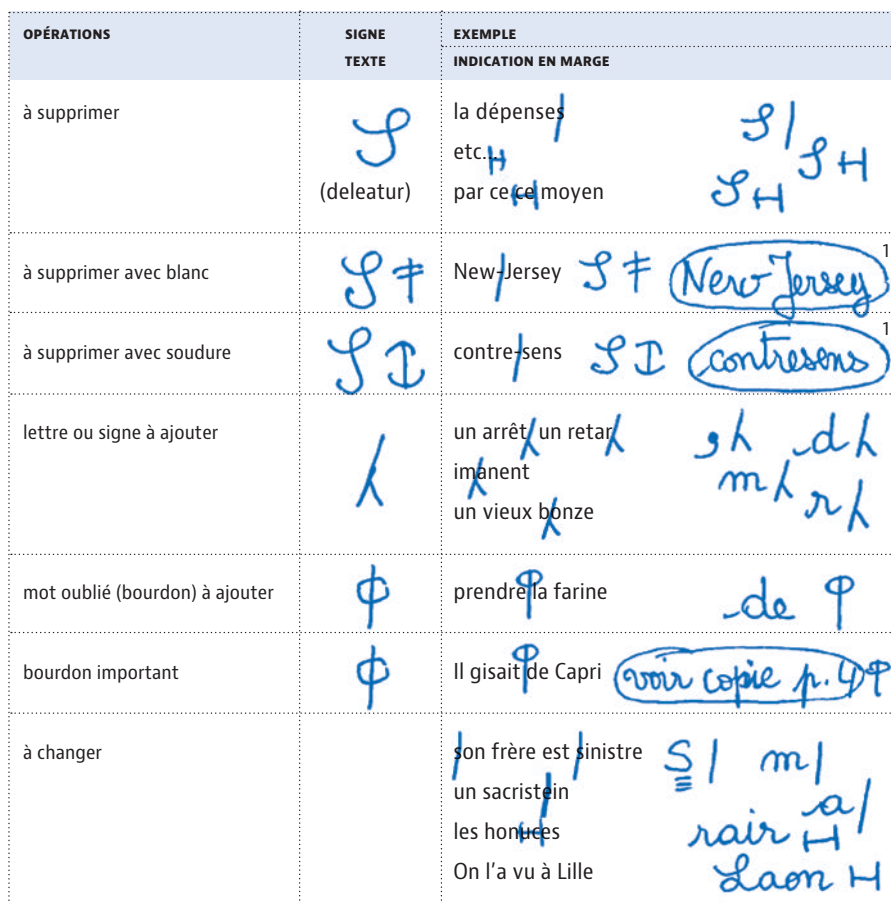 OPÉRATIONS SIGNE EXEMPLE
TEXTE INDICATION EN MARGE
à supprimer la dépenses
etc...
(deleatur) par ce ce moyen
à supprimer avec blanc New-Jersey New Jersey 1
à supprimer avec soudure contre-sens contresens 1
lettre ou signe à ajouter un arrêt un retar , d
imanent m
un vieux bonze r
mot oublié (bourdon) à ajouter prendre la farine de
bourdon important Il gisait de Capri voir copie p. 4
à changer son frère est sinistre S m
un sacristein a
les honuces rair
On l'a vu à Lille Laon